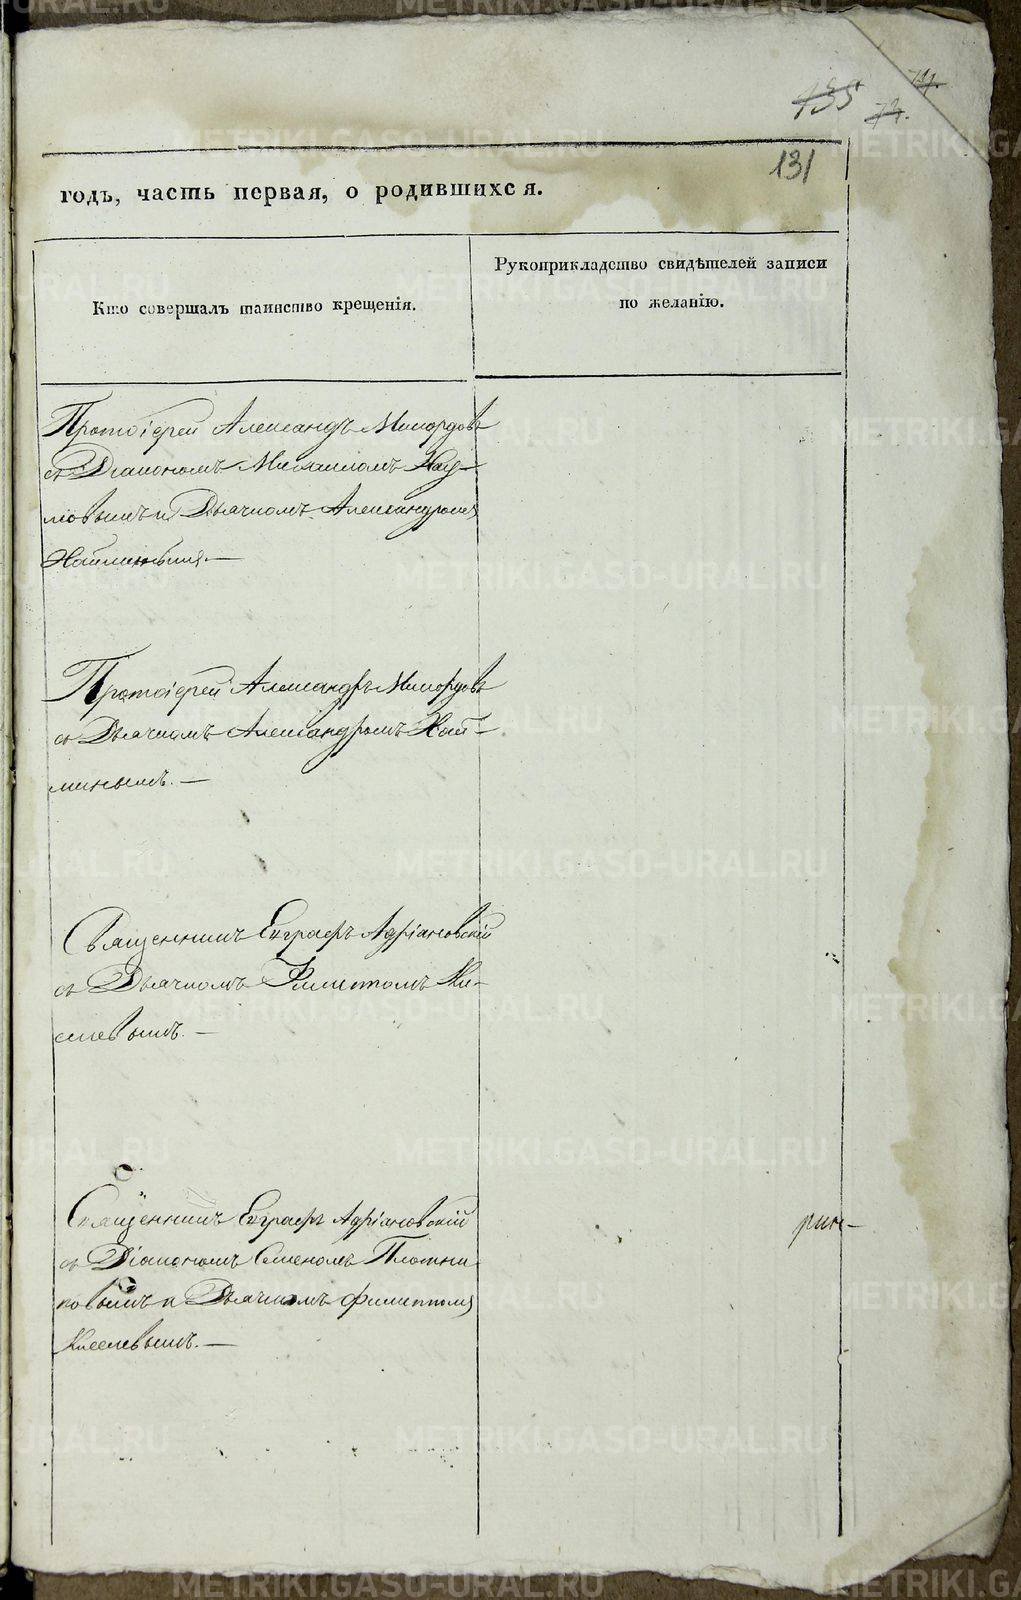 135 74.
74.
131
годъ, часть первая, о родившихся.
Кто совершалъ таинство крещенія.
Рукоприкладство свидѣтелей записи
по желанію.
Протоіерей Александъ Милордовъ
съ Діакономъ Михаиломъ Нау-
мовымъ и Дьячкомъ Александромъ
Наймин
Протоіерей Александръ Милордовъ
съ Дьячкомъ Александромъ Най-
минымъ. —
Священникъ Евграфъ Адріановскій
съ Дьячкомъ Филиппомъ Ки-
селевымъ. —
Священникъ Евграфъ Адріановскій
съ Діакономъ Семеномъ Плотни
ковымъ и Дьячкомъ Филиппомъ
Киселевымъ. —
METRIKI.GASO-URAL.RU